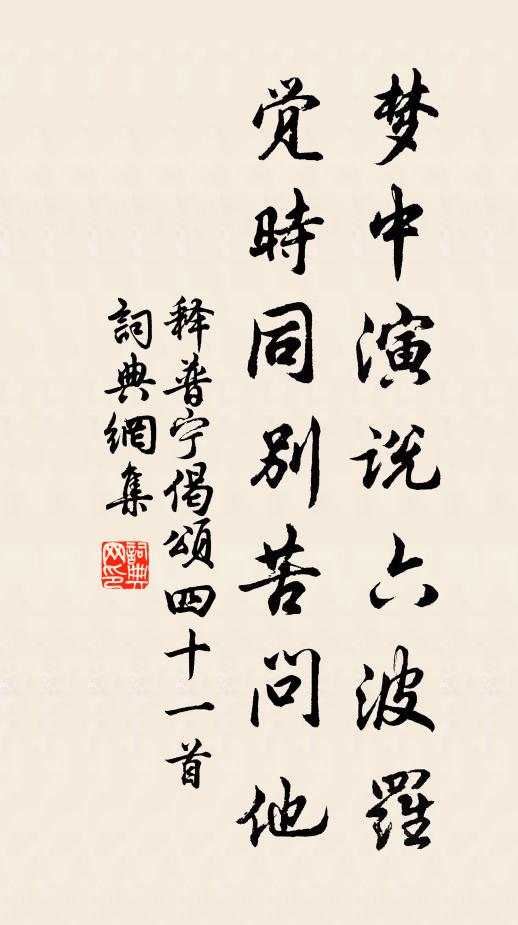 梦中演说六波羅
觉時同别苦问他
释普宁偈頌四十一首
詞典網集
詞典网印